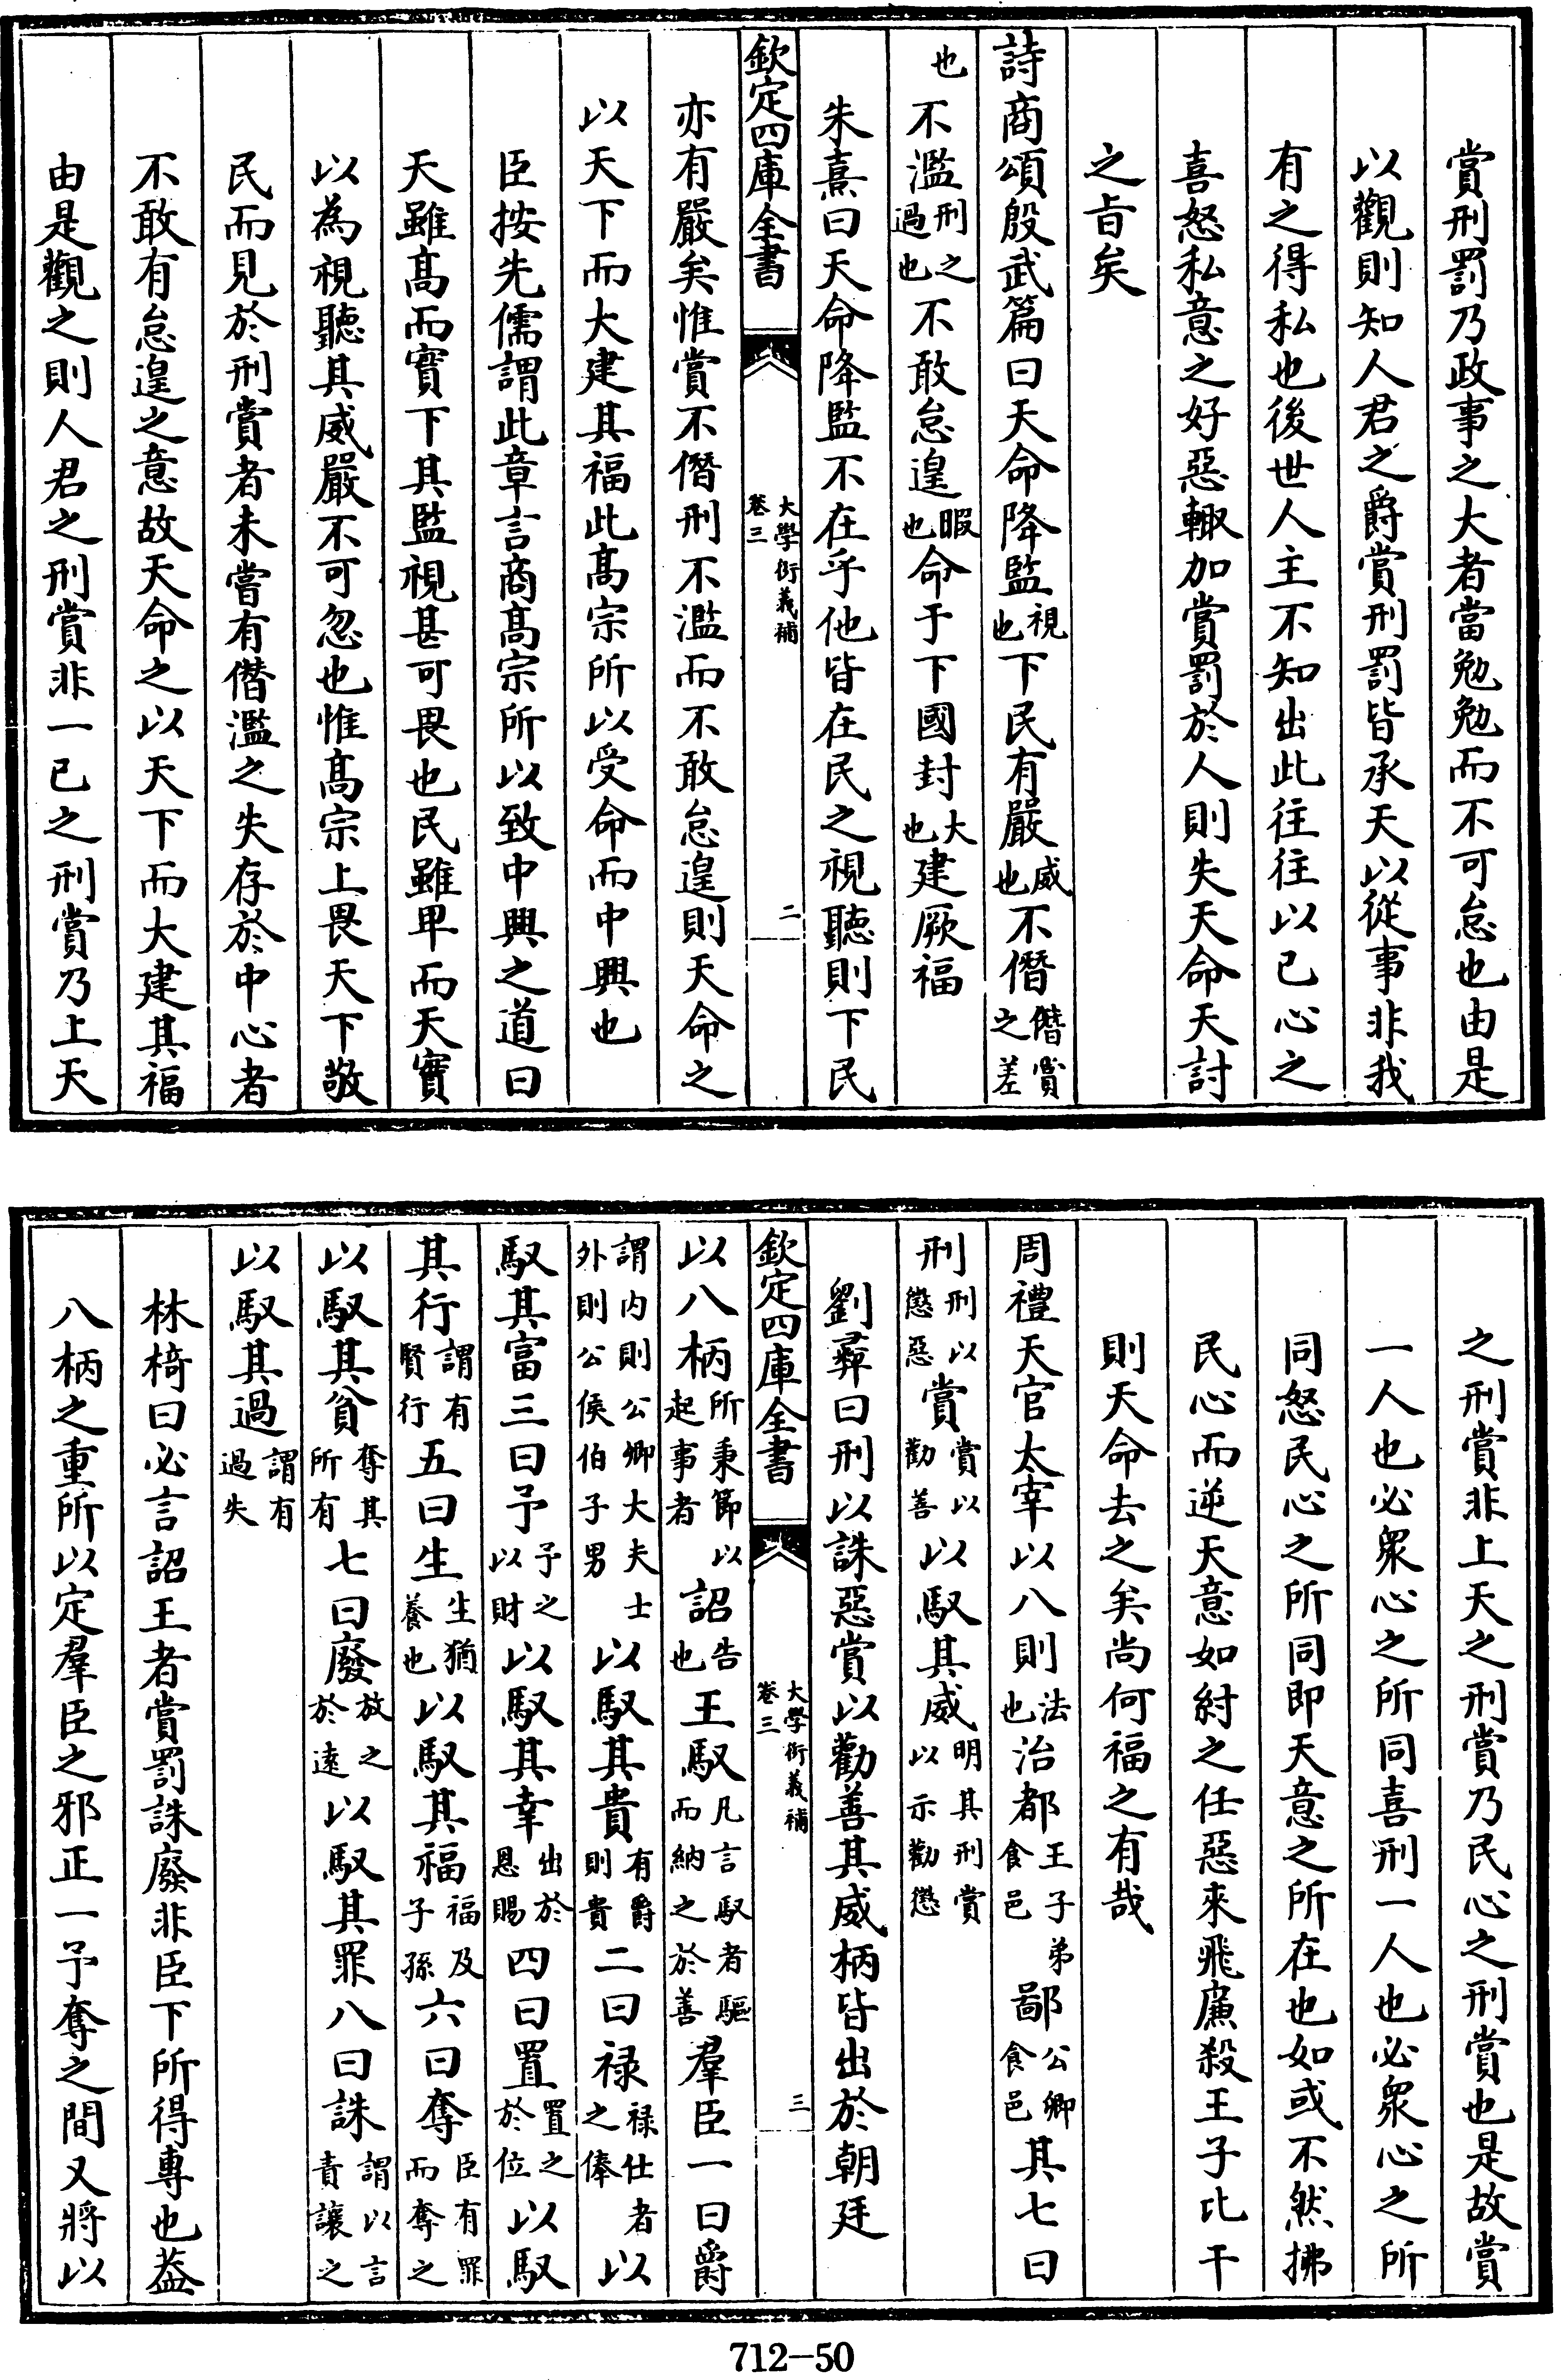 賞刑罰乃政事之大者當勉勉而不可怠也由是
以觀則知人君之爵賞刑罰皆承天以從事非我
有之得私也後世人主不知出此往往以已心之
喜怒私意之好惡輙加賞罰於人則失天命天討
之旨矣
詩商頌殷武篇曰天命降監視也下民有嚴威也不僭僭賞之差
也不濫刑之過也不敢怠遑暇也命于下國封大也建厥福
朱熹曰天命降監不在乎他皆在民之視聽則下民
欽定四庫全書 大學衍義補卷三 二
亦有嚴矣惟賞不僭刑不濫而不敢怠遑則天命之
以天下而大建其福此髙宗所以受命而中興也
臣按先儒謂此章言商髙宗所以致中興之道曰
天雖髙而實下其監視甚可畏也民雖卑而天實
以為視聽其威嚴不可忽也惟髙宗上畏天下敬
民而見於刑賞者未嘗有僭濫之失存於中心者
不敢有怠遑之意故天命之以天下而大建其福
由是觀之則人君之刑賞非一已之刑賞乃上天
之刑賞非上天之刑賞乃民心之刑賞也是故賞
一人也必衆心之所同喜刑一人也必衆心之所
同怒民心之所同即天意之所在也如或不然拂
民心而逆天意如紂之任惡來飛廉殺王子比干
則天命去之矣尚何福之有哉
周禮天官太宰以八則法也治都王子弟食邑鄙公卿食邑其七曰
刑刑以懲惡賞賞以勸善以馭其威明其刑賞以示勸懲
劉彛曰刑以誅惡賞以勸善其威柄皆出於朝廷
欽定四庫全書 大學衍義補卷三 三
以八柄所秉節以起事者詔告也王馭凡言馭者驅而納之於善羣臣一曰爵
謂内則公卿大夫士外則公侯伯子男以馭其貴有爵則貴二曰祿祿仕者之俸以
馭其富三曰予予之以財以馭其幸出於恩賜四曰置置之於位以馭
其行謂有賢行五曰生生猶養也以馭其福福及子孫六曰奪臣有罪而奪之
以馭其貧奪其所有七曰廢放之於逺以馭其罪八曰誅謂以言責讓之
以馭其過謂有過失
林椅曰必言詔王者賞罰誅廢非臣下所得專也葢
八柄之重所以定羣臣之邪正一予奪之間又將以
712-50